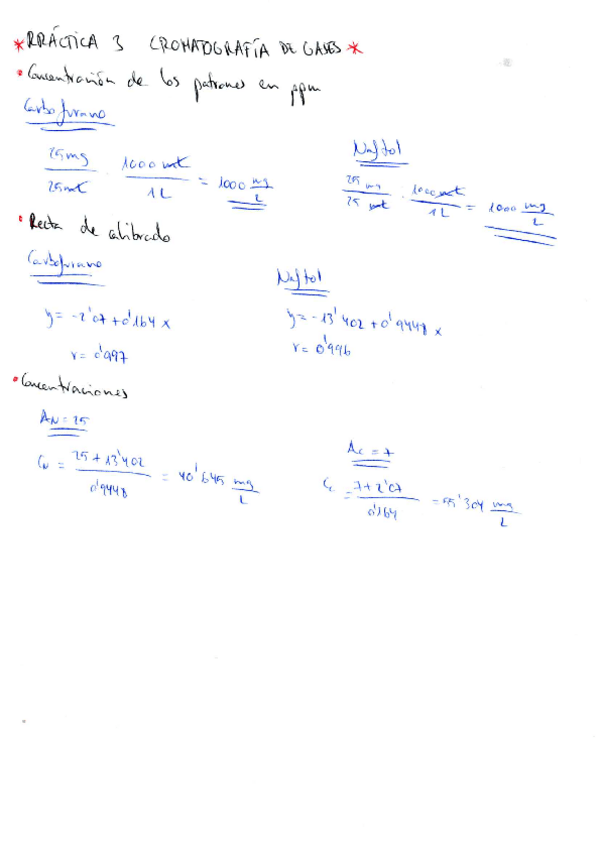 *RRÁCTICA 3 CROMATOGRAFÍA DE GASES*
• Concentración de los patrones en ppm
Carbofurano
25mg / 25mL · 1000 mL / 1L = 1000 mg/L
Naftol
25 mg / 25 mL · 1000 mL / 1L = 1000 mg/L
• Recta de calibrado
Carbofurano
y = -2'07 + 0'164 x
r = 0'997
Naftol
y = -13'402 + 0'9448 x
r = 0'996
• Concentraciones
AN = 25
CN = 25 + 13'402 / 0'9448 = 40'645 mg/L
Ac = 7
Cc = 7 + 2'07 / 0'164 = 55'304 mg/L